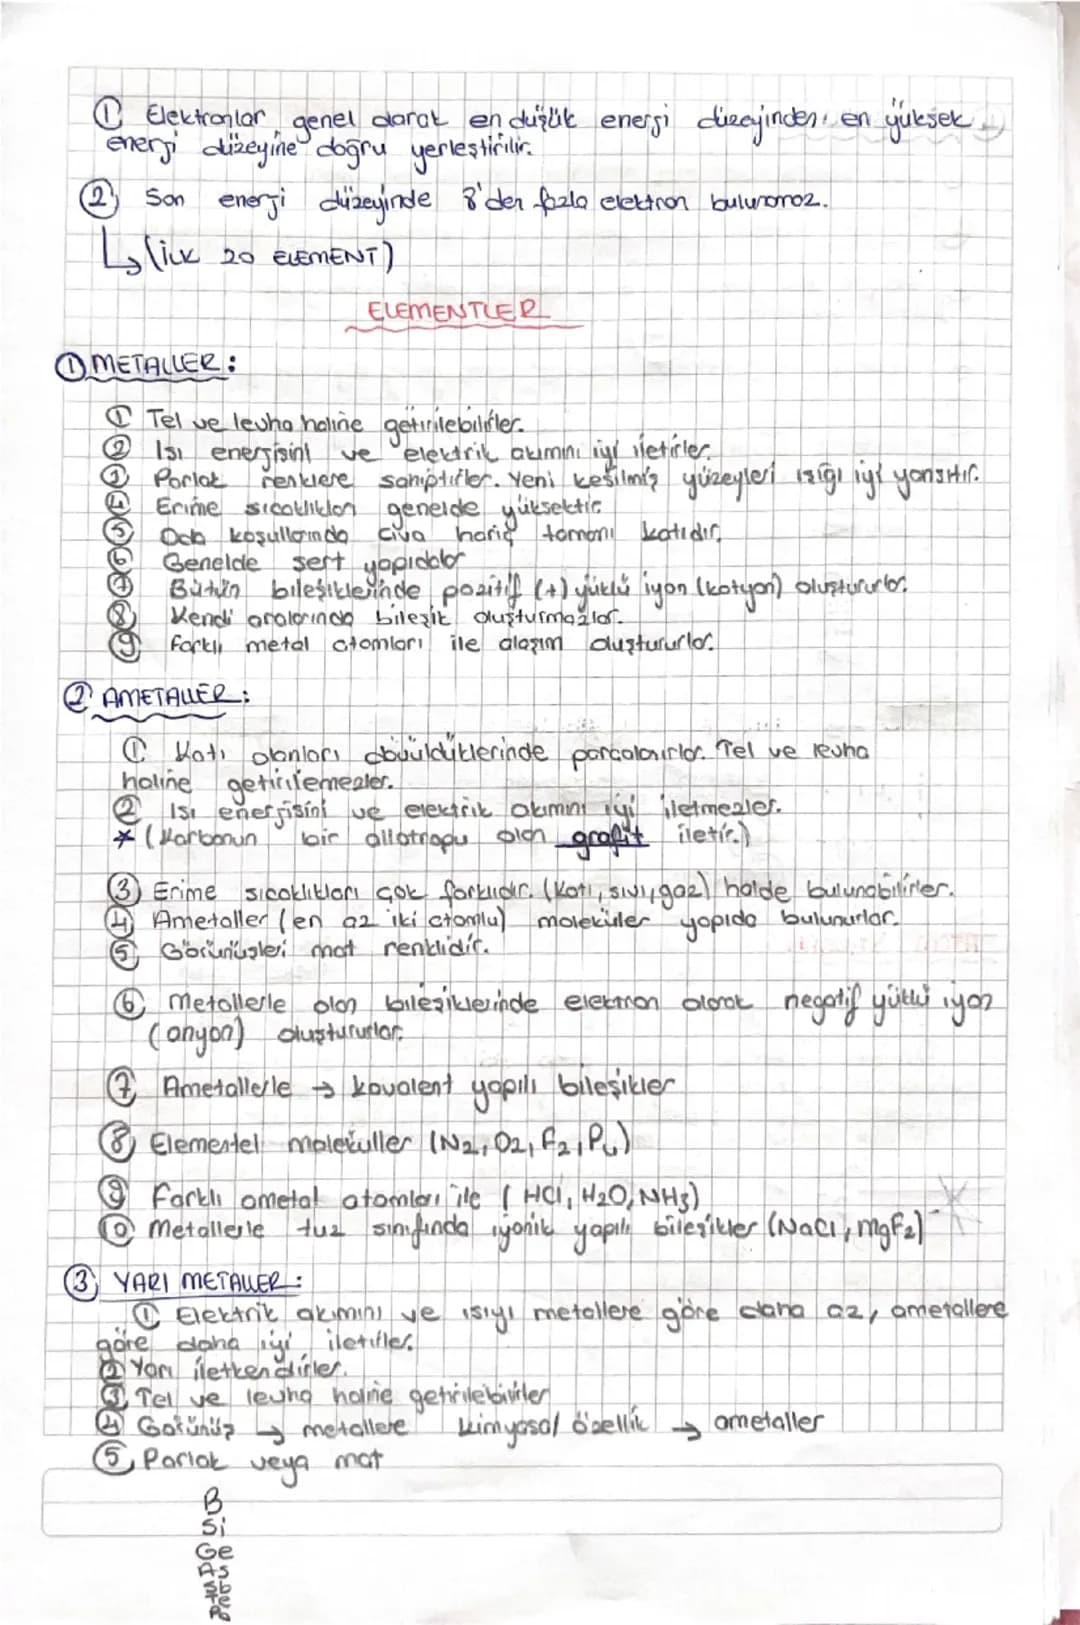 ① Elektronlar genel olarak en düşük enerji düzeyinden en yüksek
enerji düzeyine doğru yerleştirilir.
② Son enerji düzeyinde 8'den fazla elektron bulunamaz.
↳ (İLK 20 ELEMENT)
ELEMENTLER
① METALLER:
① Tel ve levha haline getirilebilirler.
② Isı enerjisini ve elektrik akımını iyi iletirler.
③ Parlak renklere sahiptirler. Yeni kesilmiş yüzeyleri ışığı iyi yansıtır.
④ Erime sıcaklıkları genelde yüksektir.
⑤ Oda koşullarında civa hariç tamamı katıdır.
⑥ Genelde sert yapıdalar
⑦ Bütün bileşiklerinde pozitif (+) yüklü iyon (katyon) oluştururlar.
⑧ Kendi aralarında bileşik oluşturmazlar.
⑨ Farklı metal atomları ile alaşım oluştururlar.
② AMETALLER:
① Katı olanları dövüldüklerinde parçalanırlar. Tel ve levha
haline getirilemezler.
② Isı enerjisini ve elektrik akımını iyi iletmezler.
* (Karbonun bir allotropu olan grafit iletir.)
③ Erime sıcaklıkları çok farklıdır. (Katı, sıvı, gaz) halde bulunabilirler.
④ Ametaller (en az iki atomlu) moleküler yapıda bulunurlar.
⑤ Görünüşleri mat renklidir.
⑥ Metallerle olan bileşiklerinde elektron alarak negatif yüklü iyon
(anyon) oluştururlar.
⑦ Ametallerle → kovalent yapılı bileşikler
⑧ Elementel moleküller (N2, O2, F2, P4)
⑨ Farklı ametal atomları ile (HCl, H2O, NH3)
⑩ Metallerle tuz sınıfında iyonik yapılı bileşikler (NaCl, MgF2)
③ YARI METALLER:
① Elektrik akımını ve ısıyı metallere göre daha az, ametallere
göre daha iyi iletirler.
② Yarı iletkendirler.
③ Tel ve levha haline getirilebilirler
④ Görünüş → metallere kimyasal özellik → ametaller
⑤ Parlak veya mat
B
Si
Ge
As
Sb
Te
Po